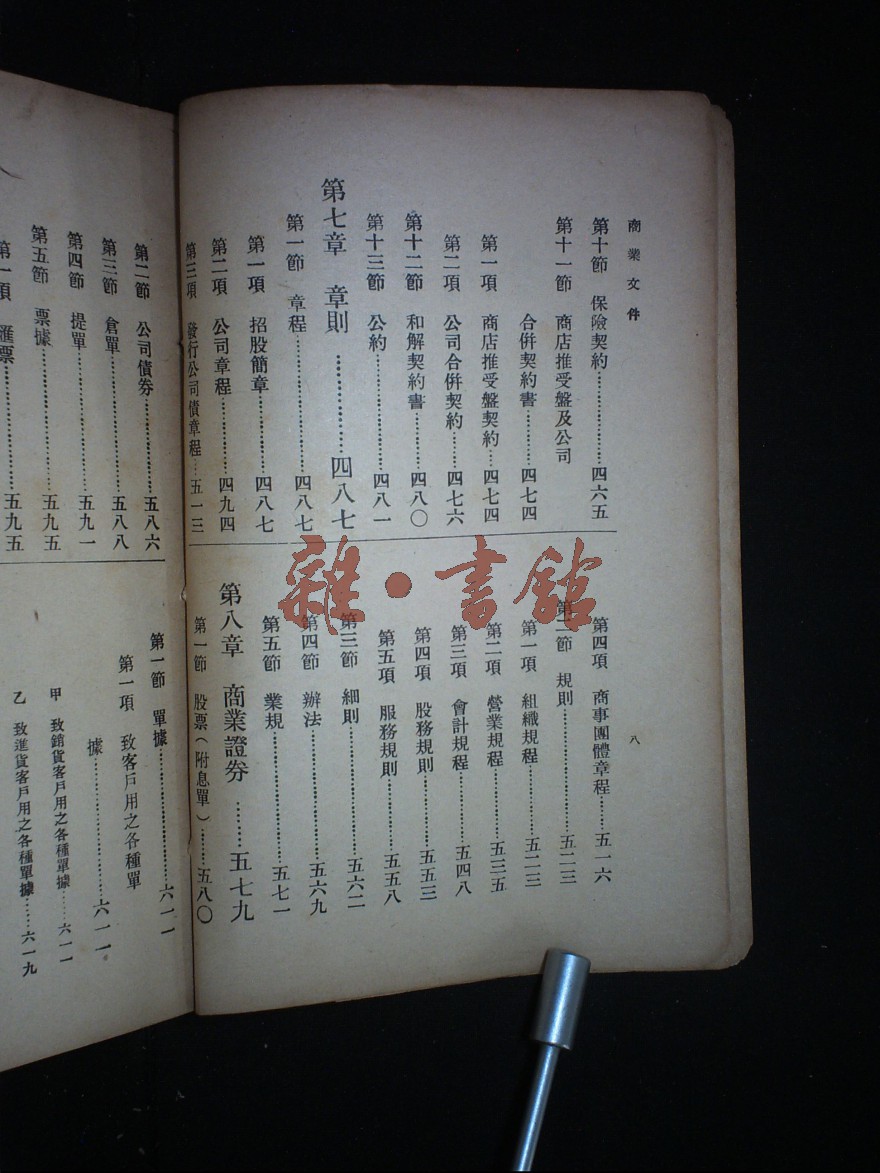 商業文件
第十節 保險契約………………四六五
第十一節 商店推受盤及公司
合併契約書…………四七四
第一項 商店推受盤契約…四七四
第二項 公司合併契約……四七六
第十二節 和解契約書…………四八〇
第十三節 公約…………………四八一
第七章 章則…………四八七
第一節 章程……………………四八七
第一項 招股簡章…………四八七
第二項 公司章程…………四九四
第三項 發行公司債章程…五一三
第四項 商事團體章程……五一六
第二節 規則……………………五二三
第一項 組織規程…………五二三
第二項 營業規程…………五三五
第三項 會計規程…………五四八
第四項 股務規則…………五五三
第五項 服務規則…………五五八
第三節 細則……………………五六二
第四節 辦法……………………五六九
第五節 業規……………………五七一
第八章 商業證券……五七九
第一節 股票(附息單)……五八〇
八
雜·書舘
第二節 公司債券………………五八六
第三節 倉單……………………五八八
第四節 提單……………………五九一
第五節 票據……………………五九五
第一項 匯票………………五九五
第一節 單據……………………六一一
第一項 致客戶用之各種單
據…………………六一一
甲 致銷貨客戶用之各種單據……六一一
乙 致進貨客戶用之各種單據……六一九